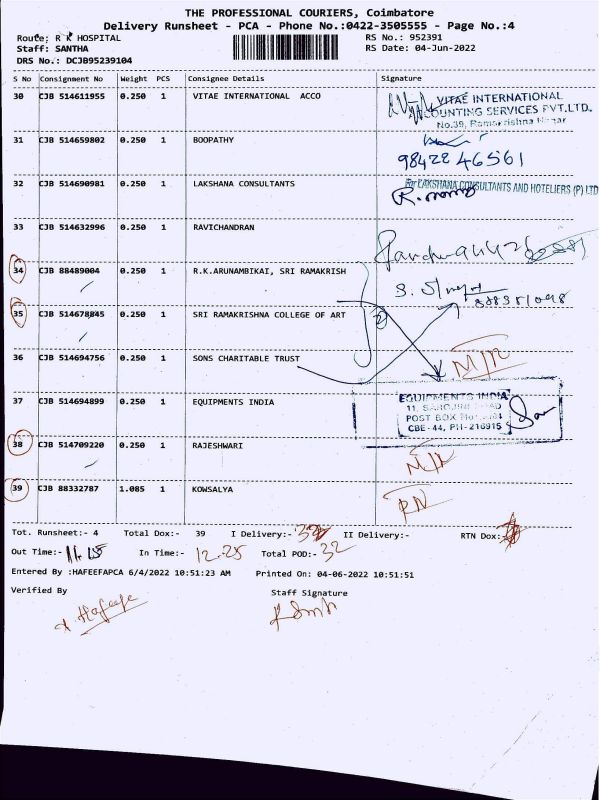 THE PROFESSIONAL COURIERS, Coimbatore
Delivery Runsheet - PCA - Phone No.:0422-3505555 - Page No.:4
Route: R K HOSPITAL
RS No.: 952391
Staff: SANTHA
RS Date: 04-Jun-2022
DRS No.: DCJB95239104
S No Consignment No Weight PCS Consignee Details Signature
30 CJB 514611955 0.250 1 VITAE INTERNATIONAL ACCO
VITAE INTERNATIONAL
ACCOUNTING SERVICES PVT.LTD.
No.39, Ramakrishna Nagar
31 CJB 514659802 0.250 1 BOOPATHY
98422 46561
32 CJB 514690981 0.250 1 LAKSHANA CONSULTANTS
For LAKSHANA CONSULTANTS AND HOTELIERS (P) LTD
33 CJB 514632996 0.250 1 RAVICHANDRAN
34 CJB 88489004 0.250 1 R.K.ARUNAMBIKAI, SRI RAMAKRISH
35 CJB 514678845 0.250 1 SRI RAMAKRISHNA COLLEGE OF ART
36 CJB 514694756 0.250 1 SONS CHARITABLE TRUST
37 CJB 514694899 0.250 1 EQUIPMENTS INDIA
EQUIPMENTS INDIA
11, SAROJINI ROAD
POST BOX
CBE-44, PH-216915
38 CJB 514709220 0.250 1 RAJESHWARI
39 CJB 88332787 1.085 1 KOWSALYA
Tot. Runsheet:- 4 Total Dox:- 39 I Delivery:- II Delivery:- RTN Dox:-
Out Time:- 11.15 In Time:- 12.25 Total POD:- 32
Entered By :HAFEEFAPCA 6/4/2022 10:51:23 AM Printed On: 04-06-2022 10:51:51
Verified By Staff Signature